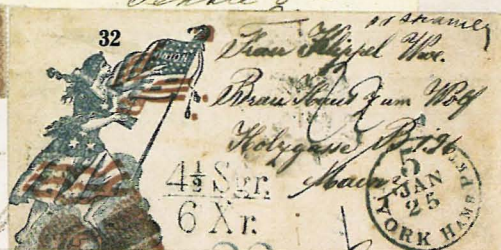 32
UNION
Frau Klippel Wwe.
Brau Haus zum Wolf
Holzgasse B 126
Mainz
4½ Sgr.
6 Xr.
5
JAN
25
YORK HAMB PKT